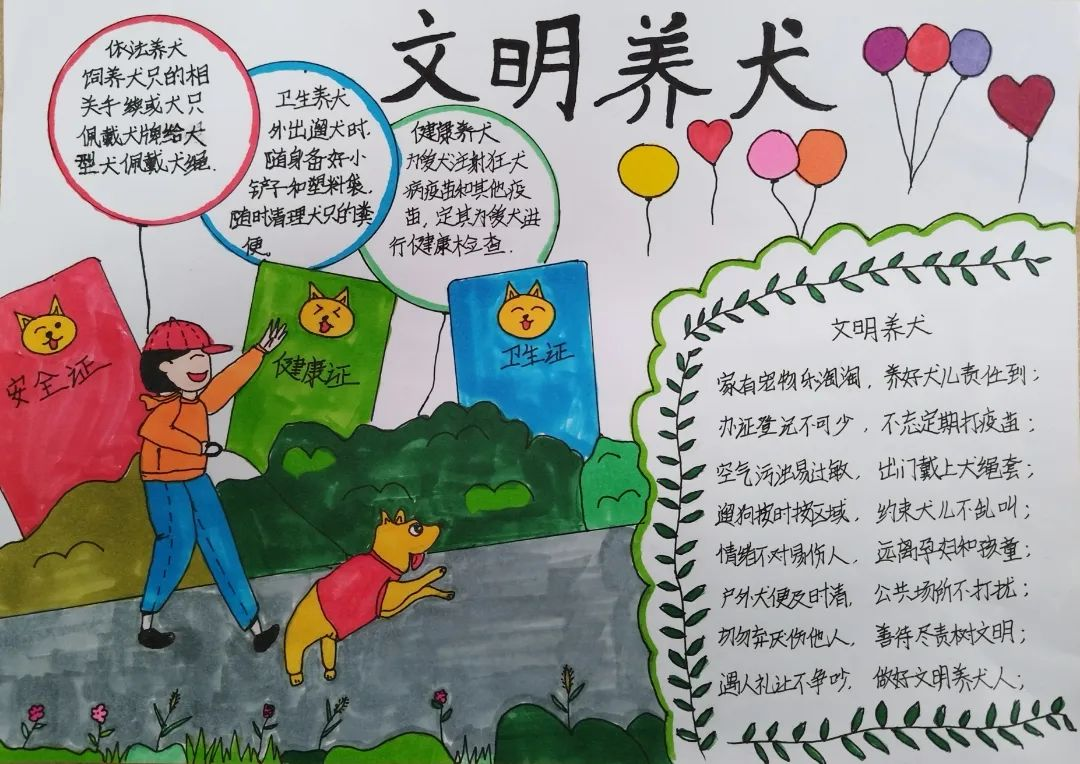 文明养犬
依法养犬
饲养犬只的相
关手续或犬只
佩戴犬牌给大
型犬佩戴犬绳.
卫生养犬
外出遛犬时.
随身备好小
铲子和塑料袋.
随时清理犬只的粪
便.
健康养犬
为爱犬注射狂犬
病疫苗和其他疫
苗,定其为爱犬进
行健康检查.
安全证
健康证
卫生证
文明养犬
家有宠物乐淘淘,养好犬儿责任到;
办证登记不可少,不忘定期打疫苗;
空气污浊易过敏,出门戴上犬绳套;
遛狗按时按区域,约束犬儿不乱叫;
情绪不对易伤人,远离孕妇和孩童;
户外犬便及时清,公共场所不打扰;
切勿弃厌伤他人,善待尽责树文明;
遇人礼让不争吵,做好文明养犬人;